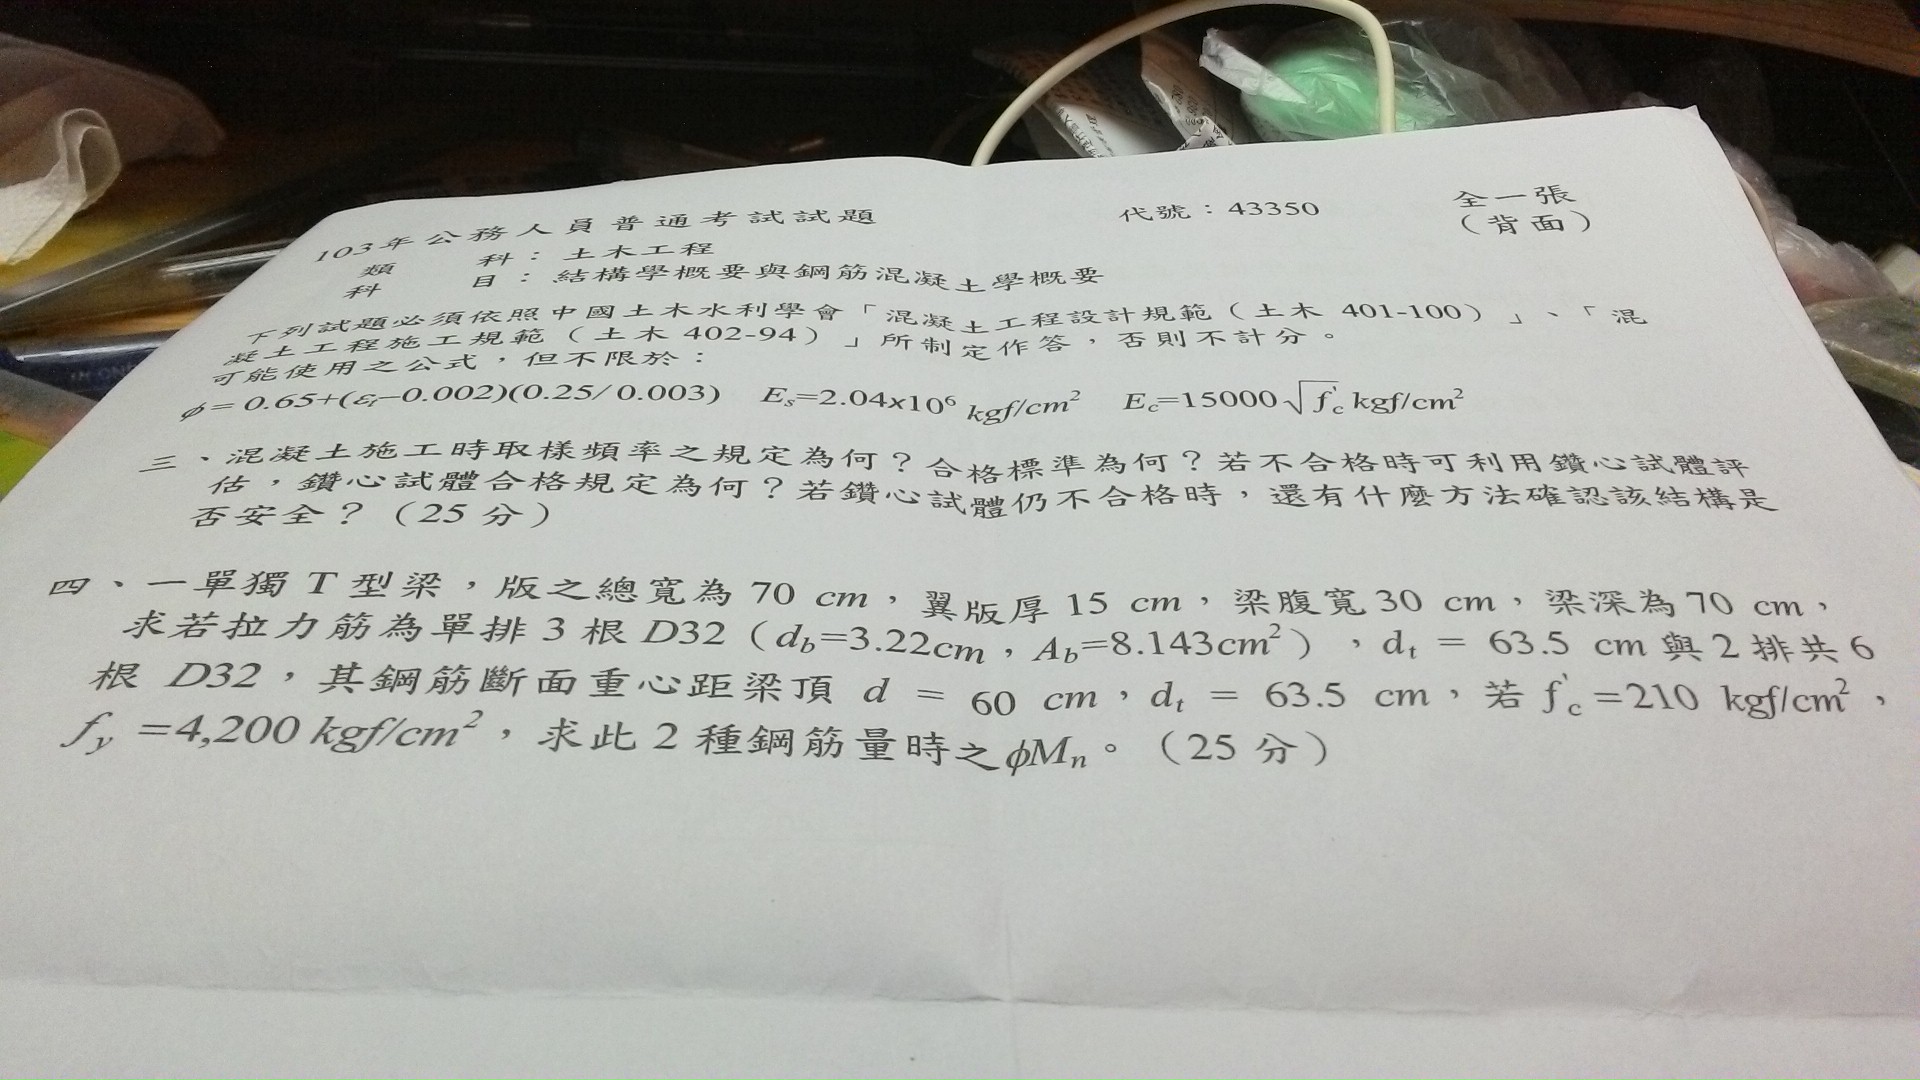 103年公務人員普通考試試題 代號：43350 全一張
（背面）
類 科：土木工程
科 目：結構學概要與鋼筋混凝土學概要
下列試題必須依照中國土木水利學會「混凝土工程設計規範（土木 401-100）」、「混
凝土工程施工規範（土木 402-94）」所制定作答，否則不計分。
可能使用之公式，但不限於：
ϕ = 0.65+(εt−0.002)(0.25/ 0.003) Es=2.04x10⁶ kgf/cm² Ec=15000√f'c kgf/cm²
三、混凝土施工時取樣頻率之規定為何？合格標準為何？若不合格時可利用鑽心試體評
估，鑽心試體合格規定為何？若鑽心試體仍不合格時，還有什麼方法確認該結構是
否安全？（25 分）
四、一單獨 T 型梁，版之總寬為 70 cm，翼版厚 15 cm，梁腹寬 30 cm，梁深為 70 cm，
求若拉力筋為單排 3 根 D32（db=3.22cm，Ab=8.143cm²），dt = 63.5 cm 與 2 排共 6
根 D32，其鋼筋斷面重心距梁頂 d = 60 cm，dt = 63.5 cm，若 f'c =210 kgf/cm²，
fy =4,200 kgf/cm²，求此 2 種鋼筋量時之 ϕMn。（25 分）